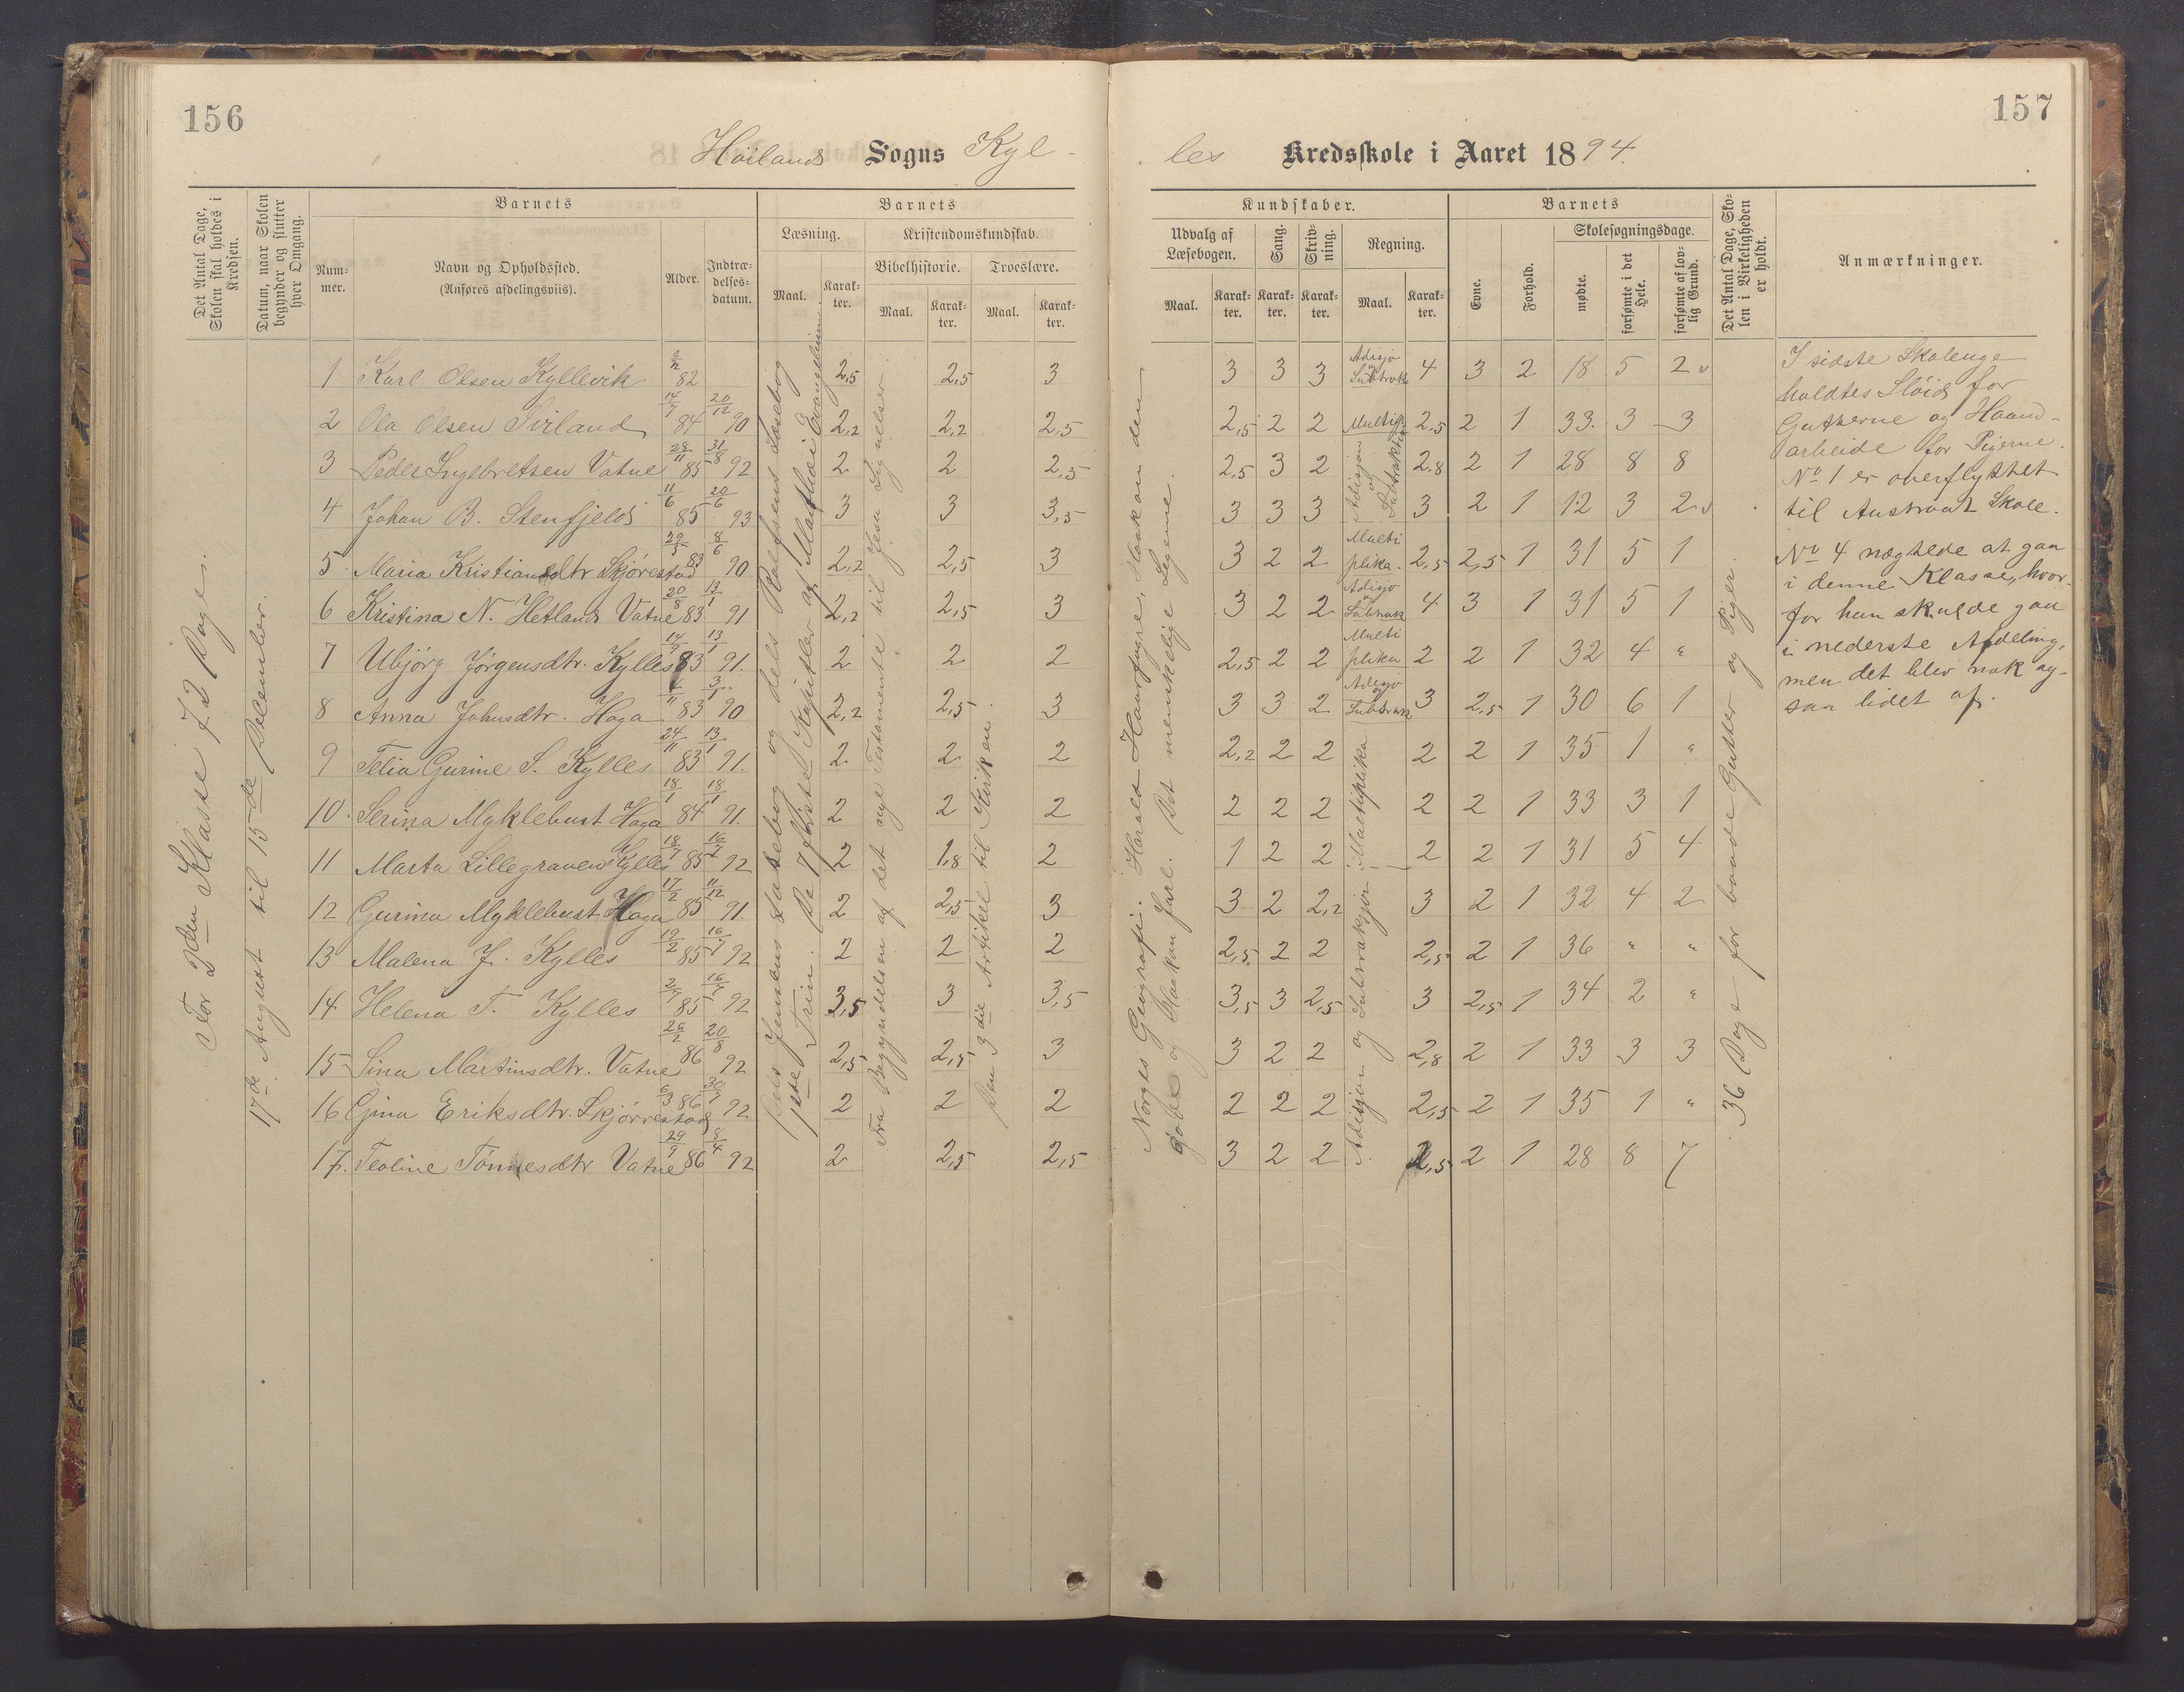 156
Höilands Sogns Kyl-
Det Antal Dage, Skolen skal holdes i Kredsen.
Datum, naar Skolen begynder og slutter hver Omgang.
Barnets
Barnets
Num-mer.
Navn og Opholdssted.
(Anføres afdelingsviis).
Alder.
Indtræ-delses-datum.
Læsning.
Kristendomskundskab.
Bibelhistorie.
Troeslære.
Maal.
Karak-ter.
Maal.
Karak-ter.
Maal.
Karak-ter.
For 2den Klasse 72 Dage.
17de August til 15de December.
1 Karl Olsen Kyllevik 82 2,5 2,5 3
2 Ola Olsen Tvirland 14/7 84 20/12 90 2,2 2,2 2,5
3 Peder Ingebretsen Vatne 28/11 85 31/8 92 2 2 2,5
4 Johan B. Stenfjeld 11/6 85 20/6 93 3 3 3,5
5 Maria Kristiansdtr Skjörestad 29/3 83 8/6 90 2,2 2,5 3
6 Kristina N. Hetland Vatne 20/8 83 13/1 91 2,2 2,5 3
7 Ubjörg Jörgensdtr. Kylles 14/9 83 13/1 91. 2 2 2
8 Anna Johnsdtr. Haga 83 3/1 90 2,2 2,5 3
9 Telia Gurine S. Kylles 24/11 83 13/1 91. 2 2 2
10. Serina Myklebust Haga 18/1 84 18/1 91. 2 2 2
11 Marta Lillegraven Kylles 18/1 85 16/7 92 2 1,8 2
12 Gurina Myklebust Haga 17/2 85 11/12 91. 2 2,5 3
13 Malena J. Kylles 19/2 85 16/7 92 2 2 2
14 Helena T. Kylles 2/7 85 16/7 92 3,5 3 3,5
15 Sina Martinsdtr. Vatne 26/2 86 20/8 92 2,5 2,5 3
16 Gina Eriksdtr. Skjörrestad 6/3 86 30/7 92 2 2 2
17. Teoline Tönnesdtr Vatne 29/9 86 8/4 92 2 2,5 2,5
Jensens Læsebog og dels Rolfsens Læsebog
1ste Trin. De 7 förste Kapitler af Matthæi Evangelium.
Fra Begyndelsen af det nye Testamente til Jesu Lignelser.
Den 3die Artikel til Kirken.
157
les Kredsskole i Aaret 1894.
Kundskaber.
Barnets
Det Antal Dage, Sko-len i Virkeligheden er holdt.
Anmærkninger.
Udvalg af Læsebogen.
Sang.
Skriv-ning.
Regning.
Evne.
Forhold.
Skolesøgningsdage.
Maal.
Karak-ter.
Karak-ter.
Karak-ter.
Maal.
Karak-ter.
mødte.
forsømte i det Hele.
forsømte af lov-lig Grund.
Norges Geografi. Harald Haarfagre, Haakon den
gode og Haakon Jarl. Det menneskelige Legeme.
3 3 3 Adisjo og Subtrak 4 3 2 18 5 2
2,5 2 2 Multip 2,5 2 1 33. 3 3
2,5 3 2 Adisjon og Subtraktio 2,8 2 1 28 8 8
3 3 3 3 2 1 12 3 2
3 2 2 Multi plika- 2,5 2,5 1 31 5 1
3 2 2 Adisjo og Subtrak 4 3 1 31 5 1
2,5 2 2 Multi plika 2 2 1 32 4 "
3 3 2 Adisjo og Subtrak 3 2,5 1 30 6 1
2,2 2 2 Multiplika 2 2 1 35 1 "
2 2 2 2 2 1 33 3 1
1 2 2 2 2 1 31 5 4
3 2 2,2 Adisjon og Subtraksjon 3 2 1 32 4 2
2,5 2 2 2,5 2 1 36 " "
3,5 3 2,5 3 2,5 1 34 2 "
3 2 2 2,8 2 1 33 3 3
2 2 2 2,5 2 1 35 1 "
3 2 2 2,5 2 1 28 8 7
36 Dage for baade Gutter og Piger.
I sidste Skoleuge
holdtes Slöid for
Gutterne og Haand-
arbeide for Pigerne.
No 1 er overflyttet
til Austraat Skole.
No 4 nægtede at gaa
i denne Klasse, hvor-
for han skulde gaa
i nederste Afdeling,
men det blev nok og-
saa lidet af.